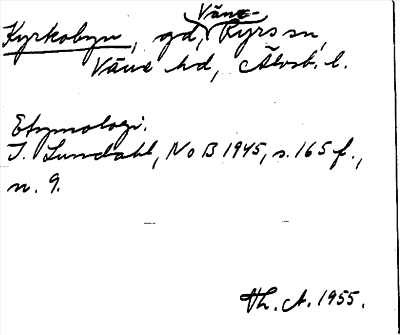 Väne-
Kyrkobyn, gd, Ryrs sn,
Väne hd, Älvsb. l.
Etymologi.
I. Lundahl, NoB 1945, s. 165 f.,
n. 9.
Th. A. 1955.